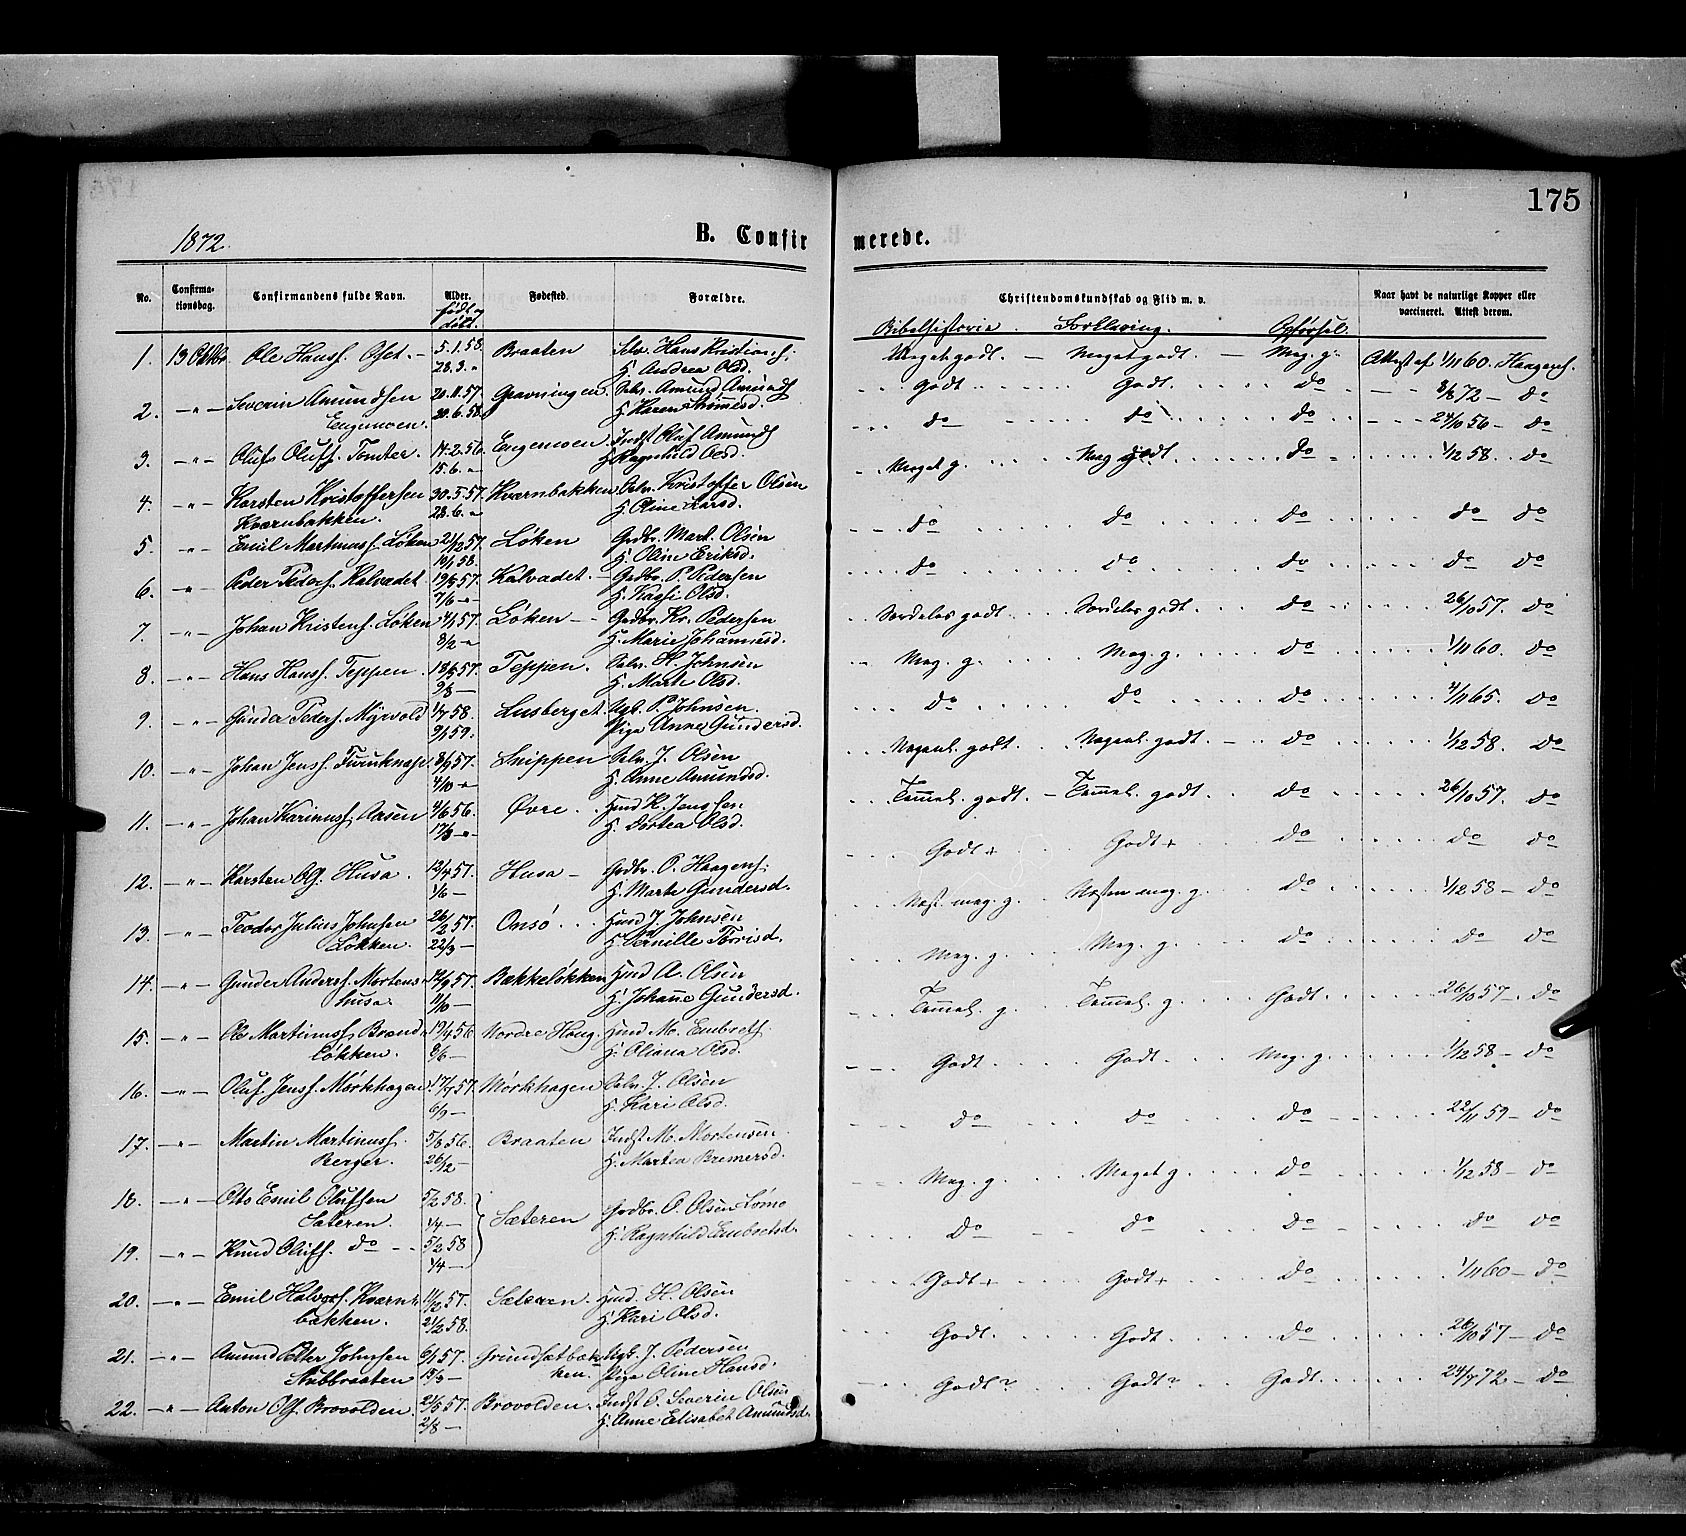 175
1872.
B. Confirmerede.
No. Confirmationsdag. Confirmandens fulde Navn. Alder. født og døbt. Fødested. Forældre. Christendomskundskab og Flid m. v. Naar havt de naturlige Kopper eller vaccineret. Attest derom.
Bibelhistorie. Forklaring. Opførsel.
1. 13 Oktbr Ole Hanss. Oset. 5.1.58 Braaten Selv. Hans Kristians. Meget godt. Meget godt. Meg. g. Attest af 1/11 60. Haagens.
28.3. " H. Andrea Olsd.
2. " Severin Amundsen 20.11.57 Gravningen. Selv. Amund Amunds Godt Godt. do 8/8 72 do
Engemoen. 20.6.58. H. Karen
3. " Olufs Olufs. Tomter. 14.2.56. Engemoen. Indst Oluf Amunds do do do 24/10 56 do
15.6. " H. Ragnhild Olsd.
4. " Karsten Kristoffersen 30.5.57. Kværnbakken Selv. Kristoffer Olsen Meget g. Meg godt. do 1/12 58. do
Kværnbakken. 28.6. " H. Oline Larsd.
5. " Emil Martinuss. Løken 21/12 57. Løken Grdbr. Mart. Olsen do do do do do
10/1 58. H. Oline Eriksd.
6. " Peder Peders. Kalvadet 19/5 57. Kalvadet. Grdbr. P. Pedersen do do do do do
7/6 " H. Olsd.
7. " Johan Kristens. Løken 4/1 57. Løken Grdbr. Kr. Pedersen Særdeles godt. Særdeles godt. do 26/10 57. do
8/2 " H. Marie Johannesd.
8. " Hans Hanss. Teppen. 18/5 57. Teppen. Selv. H. Johnsen Meg. g. Meg. g. do 1/11 60. do
9/8 H. Marte Olsd.
9. " Gunder Peders. Myrvold 1/7 58. Lusberget. Ugk. P. Johnsen. do do do 4/11 65. do
9/1 59. Pige Anne Gundersd.
10. " Johan Jenss. Furuknap. 8/9 57. Snippen Selv. J. Olsen Nogenl. godt. Nogenl. godt. do 1/12 58. do
4/10 " H. Anne Amundsd.
11. " Johan Karinuss. Aasen 4/6 56. Øvre. Hmd K. Jenssen Temmel. godt. Temmel. godt. do 26/10 57. do
17/8 " H. Dortea Olsd.
12. " Karsten Ols. Husa. 12/4 57. Husa Grdbr. O. Haagens. Godt + Godt + do do do
1/6 H. Marte Gundersd.
13. " Teodor Julius Johnsen 26/2 57. Onsø Hmd J. Johnsen Næst. meg. g. Næsten meg. g. do 1/12 58 do
Løkken. 22/3 H. Pernille Torrisd.
14. " Gunder Anderss. Mortens- 12/9 57. Bakkeløkken Hmd A. Olsen Meg. g. Meg. g. do do do
husa. 11/10 H. Johanne Gundersd.
15. " Ole Martinuss. Brænd- 19/4 56. Nordre Haug. Hmd M. Embrets. Temmel. g. Temmel. g. Godt 26/10 57. do
løkken. 8/6 H. Oliana Olsd.
16. " Oluf Jenss. Mørkhagen 17/7 57. Mørkhagen Selv. J. Olsen Godt Godt. Meg. g. 1/12 58 do
6/9 H. Kari Olsd.
17. " Martin Martinuss. 5/8 56. Braaten Indst M. Mortensen. do do do 22/11 59 do
Berger. 26/12 H. Martea Bremersd.
18. " Otto Emil Olufsen 5/2 58. Sæteren Grdbr. O. Olsen Lømo Meg. g. Meget g. do 1/12 58 do
Sæteren. 1/4 H. Ragnhild Embretsd.
19. " Knud Olufs. do 5/2 58 do do do do do
1/4
20. " Emil Halvors. Kværn- 11/12 57. Sæteren. Hmd. H. Olsen Godt + Godt + do 1/11 60 do
bakken. 21/2 58. H. Kari Olsd.
21. " Amund Petter Johnsen 6/1 57. Grundsætbæk- Ugk. J. Pedersen Godt. Godt. do 26/10 57 do
Stubbraaten 15/3 ken. Pige Oline Hansd.
22. " Anton Ols. Brovolden. 21/5 57. Brovolden. Indst O. Severin Olsen Godt? Godt? Godt 24/7 72 do
2/8 H. Anne Elisabet Amundsd.